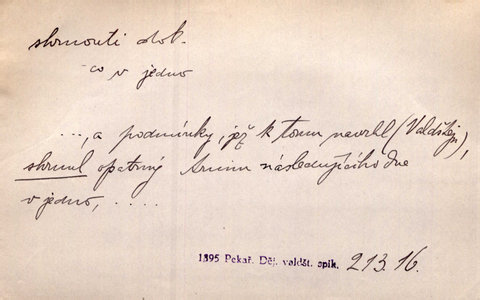 shrnouti dok.
co v jedno
..., a podmínky, jež k tomu navrhl (Valdštejn),
shrnul opatrný Arnim následujícího dne
v jedno, .....
1895 Pekař. Děj. valdšt. spik. 213.16.